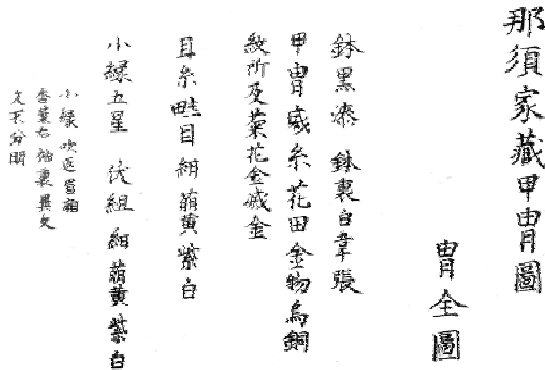 那須家蔵甲冑圖
冑全圖
鉢黒漆 鉢裏白韋張
甲冑威糸花田金物烏銅
紋所及菊花金滅金
耳糸畦目紺萠黄紫白
小縁五星 伏組 紺萠黄紫白
小縁吹返當
右袖裏異文
文不分明